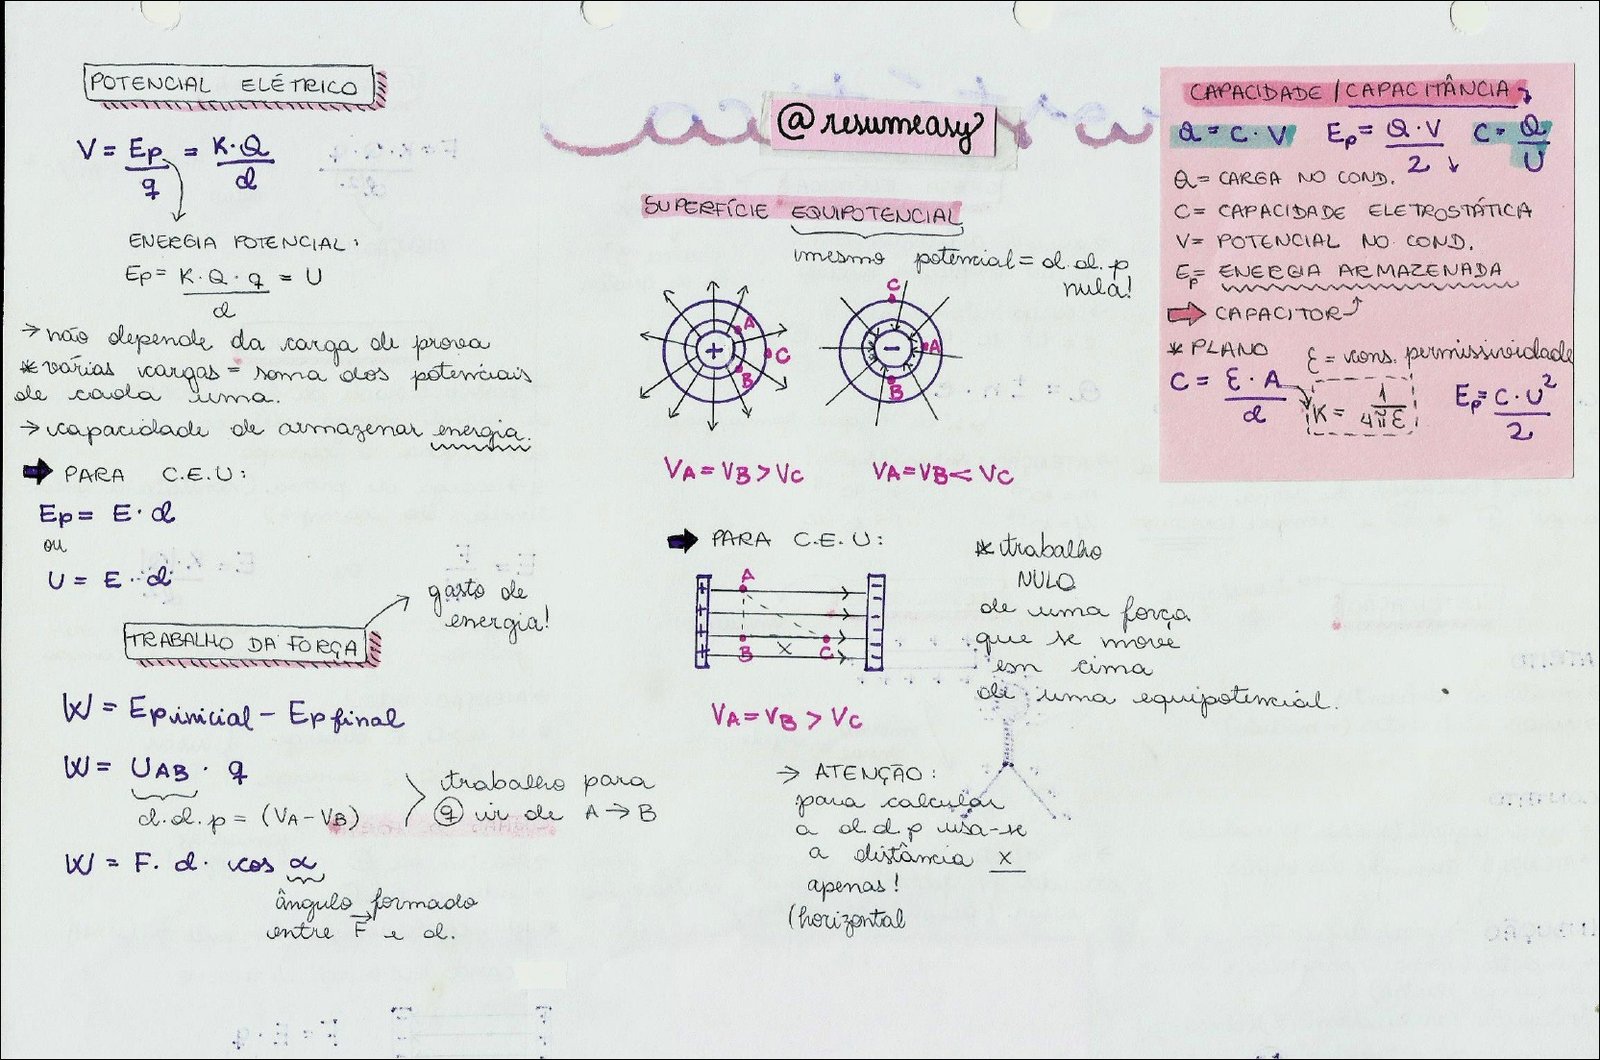 POTENCIAL ELÉTRICO
V = Ep/q = K·Q/d
ENERGIA POTENCIAL:
Ep = K·Q·q/d = U
→ não depende da carga de prova
* várias cargas = soma dos potenciais
de cada uma.
→ capacidade de armazenar energia.
➡ PARA C.E.U:
Ep = E·d
ou
U = E·d
TRABALHO DA FORÇA
gasto de
energia!
W = Ep inicial - Ep final
W = UAB · q
d.d.p = (VA - VB)
trabalho para
q ir de A → B
W = F. d. cos α
ângulo formado
entre F e d.
@resumeasy
SUPERFÍCIE EQUIPOTENCIAL
mesmo potencial = d.d.p
nula!
+ A B C
- A B C
VA = VB > VC
VA = VB < VC
➡ PARA C.E.U:
A
B x C
VA = VB > VC
* trabalho
NULO
de uma força
que se move
em cima
de uma equipotencial.
→ ATENÇÃO:
para calcular
a d.d.p usa-se
a distância x
apenas!
(horizontal
CAPACIDADE / CAPACITÂNCIA
Q = C·V Ep = Q·V/2 C = Q/U
Q = CARGA NO COND.
C = CAPACIDADE ELETROSTÁTICA
V = POTENCIAL NO COND.
Ep = ENERGIA ARMAZENADA
➡ CAPACITOR
* PLANO
ε = cons. permissividade
C = ε·A/d
K = 1/4πε
Ep = C·U²/2